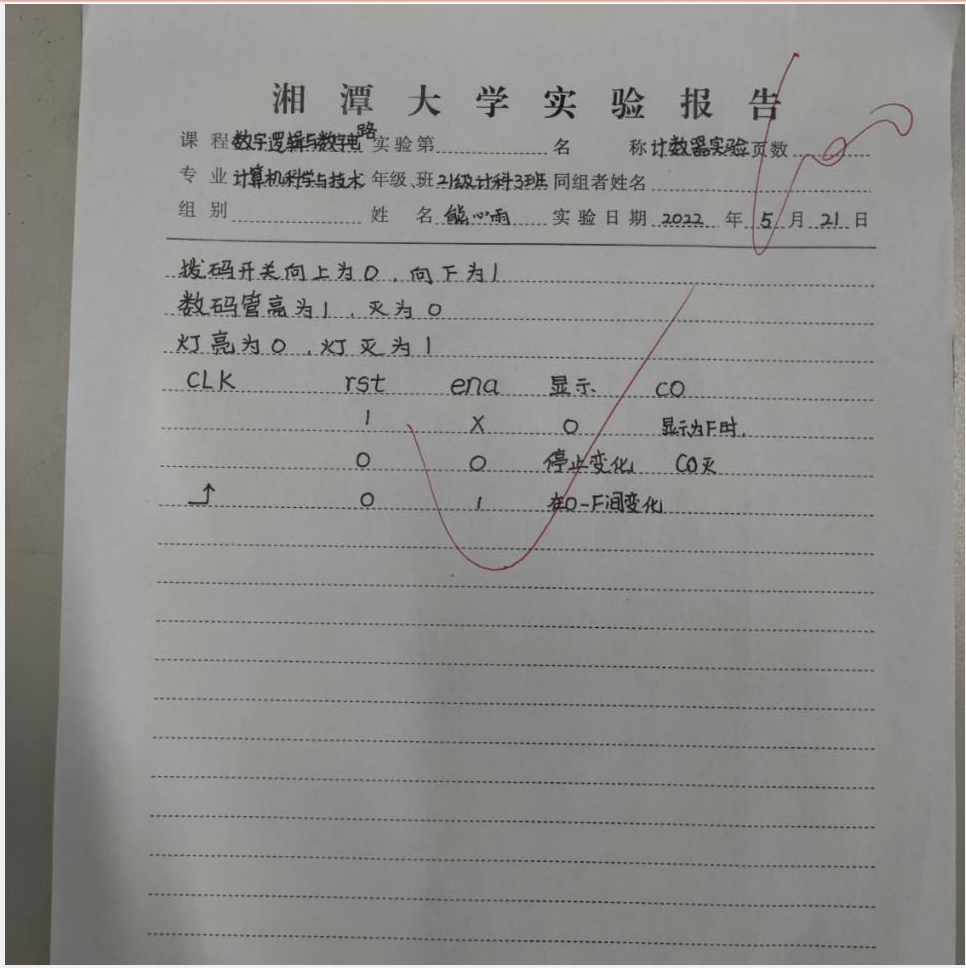 湘潭大学实验报告
课程 数字逻辑与数字电路 实验第 名称 计数器实验 页数
专业 计算机科学与技术 年级、班 21级计科3班 同组者姓名
组别 姓名 熊心雨 实验日期 2022 年 5 月 21 日
拨码开关向上为0，向下为1
数码管亮为1，灭为0
灯亮为0，灯灭为1
CLK rst ena 显示 CO
1 X 0 显示为F时，
0 0 停止变化 CO灭
↑ 0 1 在0-F间变化